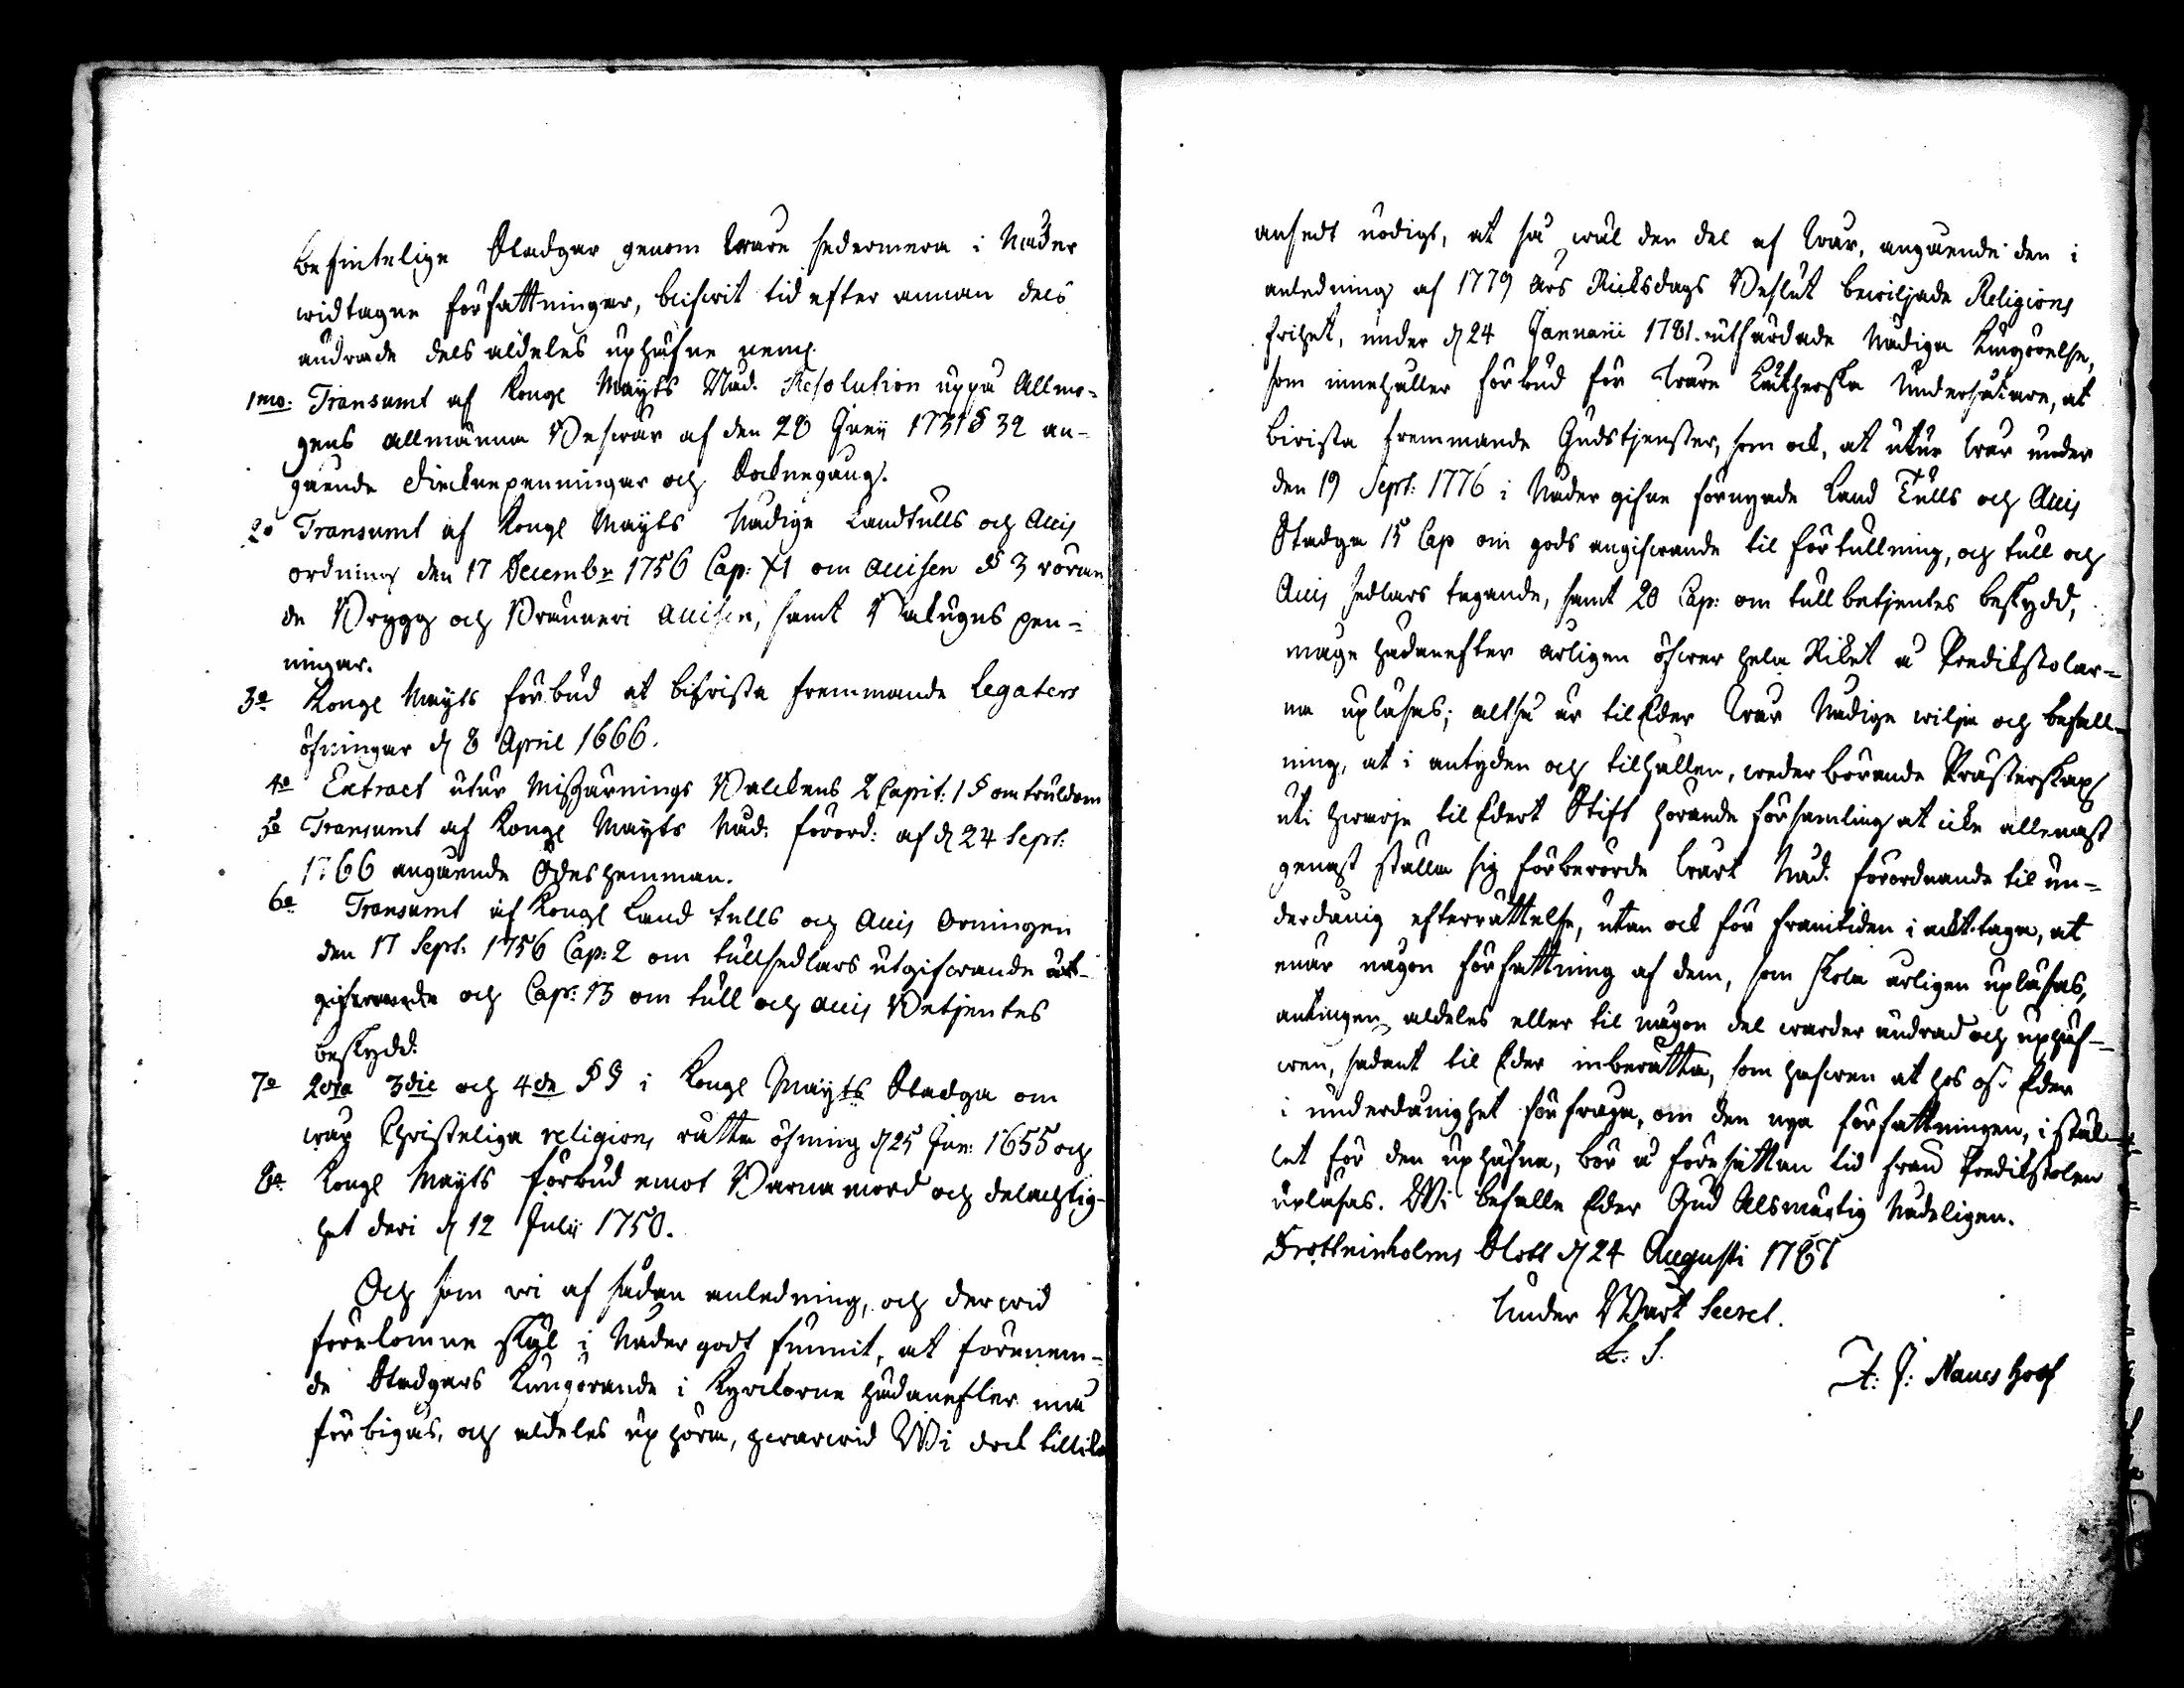 befintelige Stadgar genom Wåre sedermera i Nåder
widtagne författningar, blifwit tid efter annan dels
ändrade dels aldeles uphäfne neml.
1mo. Transumt af Kongl Mayts Nåd. Resolution uppå Allmo-
gens allmänna Beswär af den 28 Junii 1731 § 32 an-
gående Dieknepenningar och Socknegång.
2o Transumt af Kongl Mayts Nådige Landtulls och Accis
ordning den 17 Decembr 1756 Cap: XI om accisen § 3 röran
de Brygg och Bränneri accisen, samt Bakugns pen-
ningar.
3o Kongl Mayts förbud at bifwista fremmande Legaters
öfningar d 8 April 1666.
4o Extract utur Missgärnings Balckens 2 Capit: 1 § om truldom
5o Transumt af Kongl Mayts Nåd: förord: af d 24 Sept:
1766 angående Ödeshemman.
6o Transumt af Kongl Land tulls och Accis Orningen
den 17 Sept: 1756 Cap: 2 om tullsedlars utgifwande ut-
gifwande och Cap: 13 om tull och accis Betjentes
beskydd.
7o 2dra 3die och 4de §§ i Kongl Mayts Stadga om
wår Christeliga religions rätta öfning d 25 Jan: 1655 och
8o Kongl Mayts förbud emot Barnamord och delachtig-
het deri d 12 Julii 1750.
Och som wi af sådan anledning, och derwid
förekomne skäl i Nåder godt funnit, at förenem-
de Stadgars Kungörande i Kyrckorne hädanefter må
förbigås, och aldeles uphöra, hwarwid Wi dock tillika
ansedt nödigt, at så wäl den del af Wår, angående den i
anledning af 1779 års Ricksdags Beslut bewiljade Religions
frihet, under d 24 Januarii 1781. utfärdade Nådiga Kungörelse,
som innehåller förbud för Wåre Lutherska Undersåtare, at
biwista fremmande Gudstjenster, som ock, at utur Wår under
den 19 Sept: 1776 i Nåder gifne förnyade Land Tulls och Accis
Stadga 15 Cap om gods angifwande til förtullning, och tull och
Accis sedlars tagande, samt 20 Cap: om tullbetjentes beskydd,
måge hädanefter årligen öfwer hela Riket å Predikstolar-
na upläsas; altså är til Eder Wår Nådige wilja och befall-
ning, at i antyden och tilhållen, wederbörande Prästerskap
uti hwarje til Edert Stift hörande församling at icke allenast
genast ställa sig förberörde Wårt Nåd. förordnande til un-
derdånig efterrättelse, utan ock för framtiden i ackt taga, at
enär någon författning af dem, som skola årligen upläsas,
antingen aldeles eller til någon del warder ändrad och uphäf-
wen, sådant til Eder inberätta, som hafwen at hos oss Eder
i underdånighet förfråga, om den nya författningen, i stäl-
let för den uphäfna, bör å föresattan tid från Predikstolen
upläsas. Wi befalle Eder Gud Alsmägtig Nådeligen.
Drottninholms Slott d 24 Augusti 1787
Under Wårt Secret.
L. S.